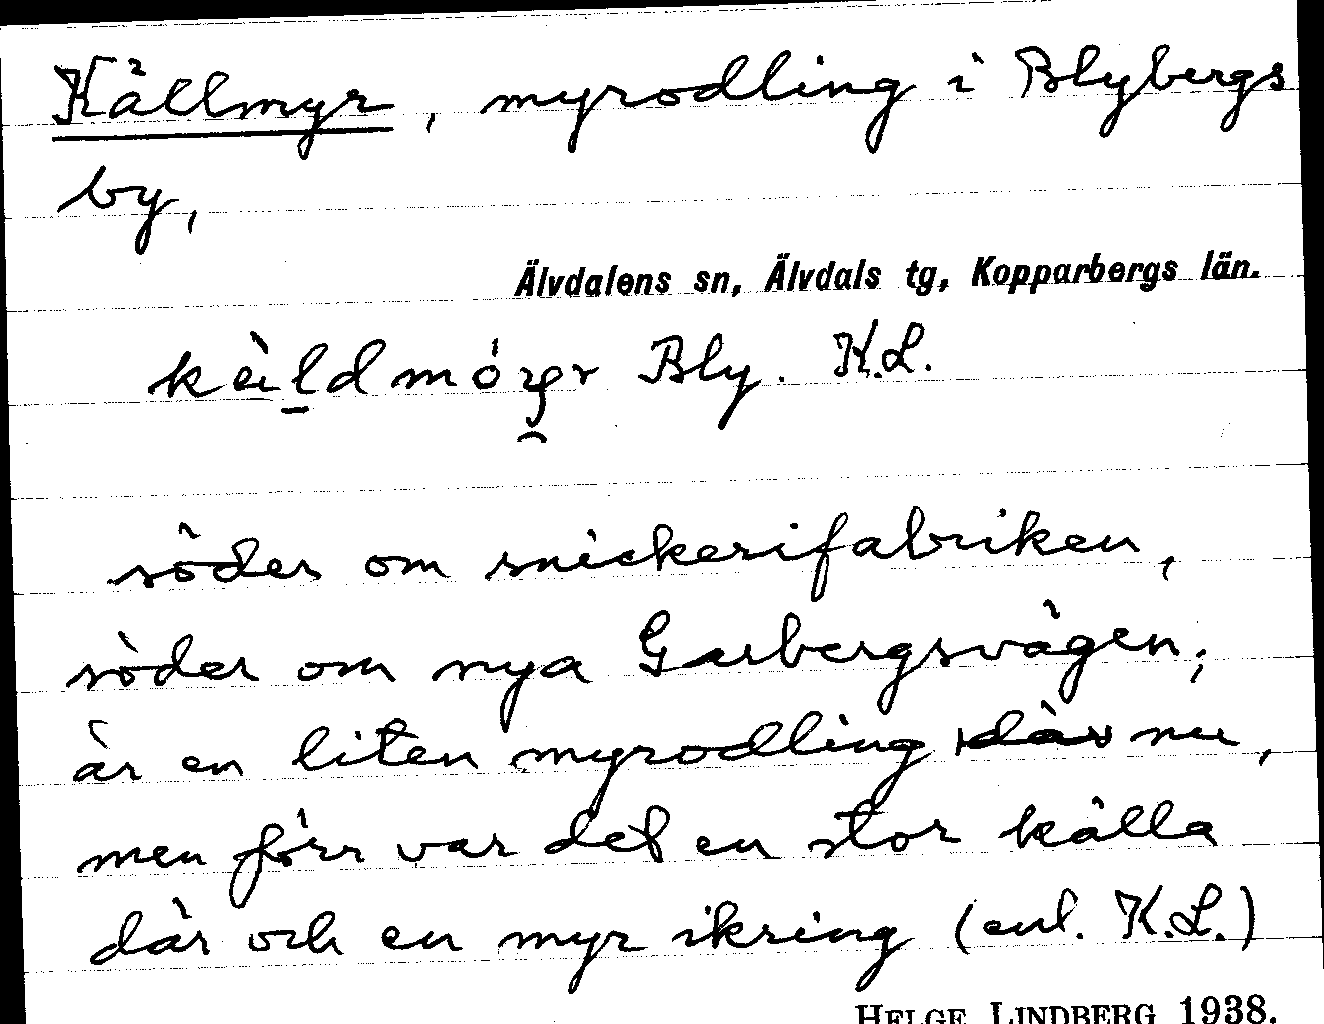 Källmyr, myrodling i Blybergs
by,
Älvdalens sn, Älvdals tg, Kopparbergs län.
Bly. K.L.
söder om snickerifabriken,
söder om nya Garbergsvägen;
är en liten myrodling där nu,
men förr var det en stor källa
där och en myr ikring (enl. K.L.)
HELGE LINDBERG 1938.